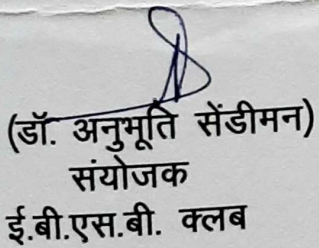 (डॉ. अनुभूति सेंडीमन)
संयोजक
ई.बी.एस.बी. क्लब